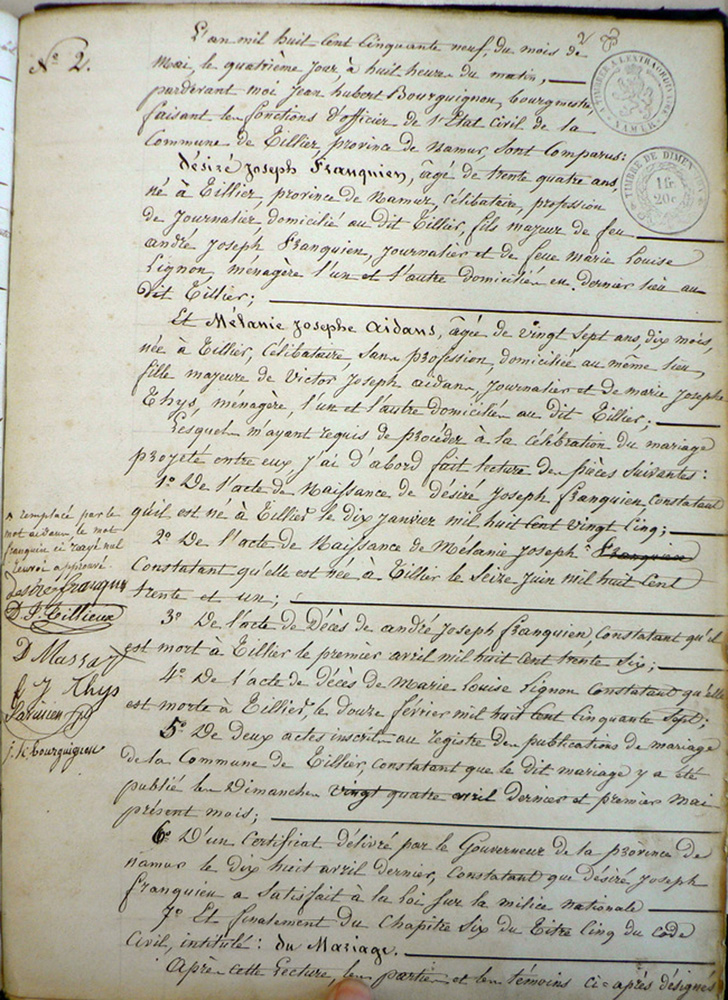 2
N° 2.
L'an mil huit-cent cinquante neuf, du mois de
Mai, le quatrième jour à huit heure du matin,
pardevant moi Jean hubert Bourguignon, bourgmestre,
faisant les fonctions d'officier de l'Etat Civil de la
Commune de Tillier, province de Namur, sont comparus:
désiré Joseph Franquien, âgé de trente quatre ans,
né à Tillier, province de Namur, célibataire, profession
de Journalier domicilié au dit Tillier, fils majeur de feu
andré Joseph Franquien, journalier et de feue marie Louise
Lignon, ménagère l'un et l'autre domiciliés en dernier lieu au
dit Tillier;
Et Mélanie Josephe aidans, âgée de vingt sept ans, dix mois,
née à Tillier, célibataire, sans profession, domiciliée au même lieu,
fille majeure de Victor Joseph aidans, journalier et de marie Josephe
Thys, ménagère, l'un et l'autre domiciliés au dit Tillier;
Lesquels m'ayant requis de procéder à la célébration du mariage
projeté entre eux, j'ai d'abord fait lecture des pièces suivantes:
1° De l'acte de Naissance de désiré Joseph franquien, constatant
qu'il est né à Tillier le dix janvier mil huit cent vingt cinq;
2° De l'acte de Naissance de Mélanie Joseph Franquien
Constatant qu'elle est née à Tillier le Seize Juin mil huit Cent
trente et un;
3° De l'acte de Décès de andré Joseph franquien, constatant qu'il
est mort à Tillier le premier avril mil huit cent trente six;
4° De l'acte de décès de Marie Louise Lignon constatant qu'elle
est morte à Tillier, le douze février mil huit cent cinquante Sept;
5° De deux actes inscrits au registre des publications de mariage
de la Commune de Tillier, constatant que le dit mariage y a été
publié les Dimanches vingt quatre avril dernier et premier mai
présent mois;
6° D'un Certificat délivré par le Gouverneur de la province de
namur le dix huit avril dernier, constatant que désiré Joseph
franquien a satisfait à la loi sur la milice nationale
7° Et finalement du Chapitre Six du Titre Cinq du code
Civil, intitulé: du Mariage.
Après cette lecture, les parties et les témoins ci-après désignés
remplacé par le
mot aidans, le mot
franquien ci rayé nul
Renvoi approuvé.
Desire franquien
D J Tillieux
D Massaux
f J Thys
Parisien
j. h bourguignon
TIMBRE A L'EXTRAORDINAIRE
NAMUR
TIMBRE DE DIMENSION
1 fr
20 c